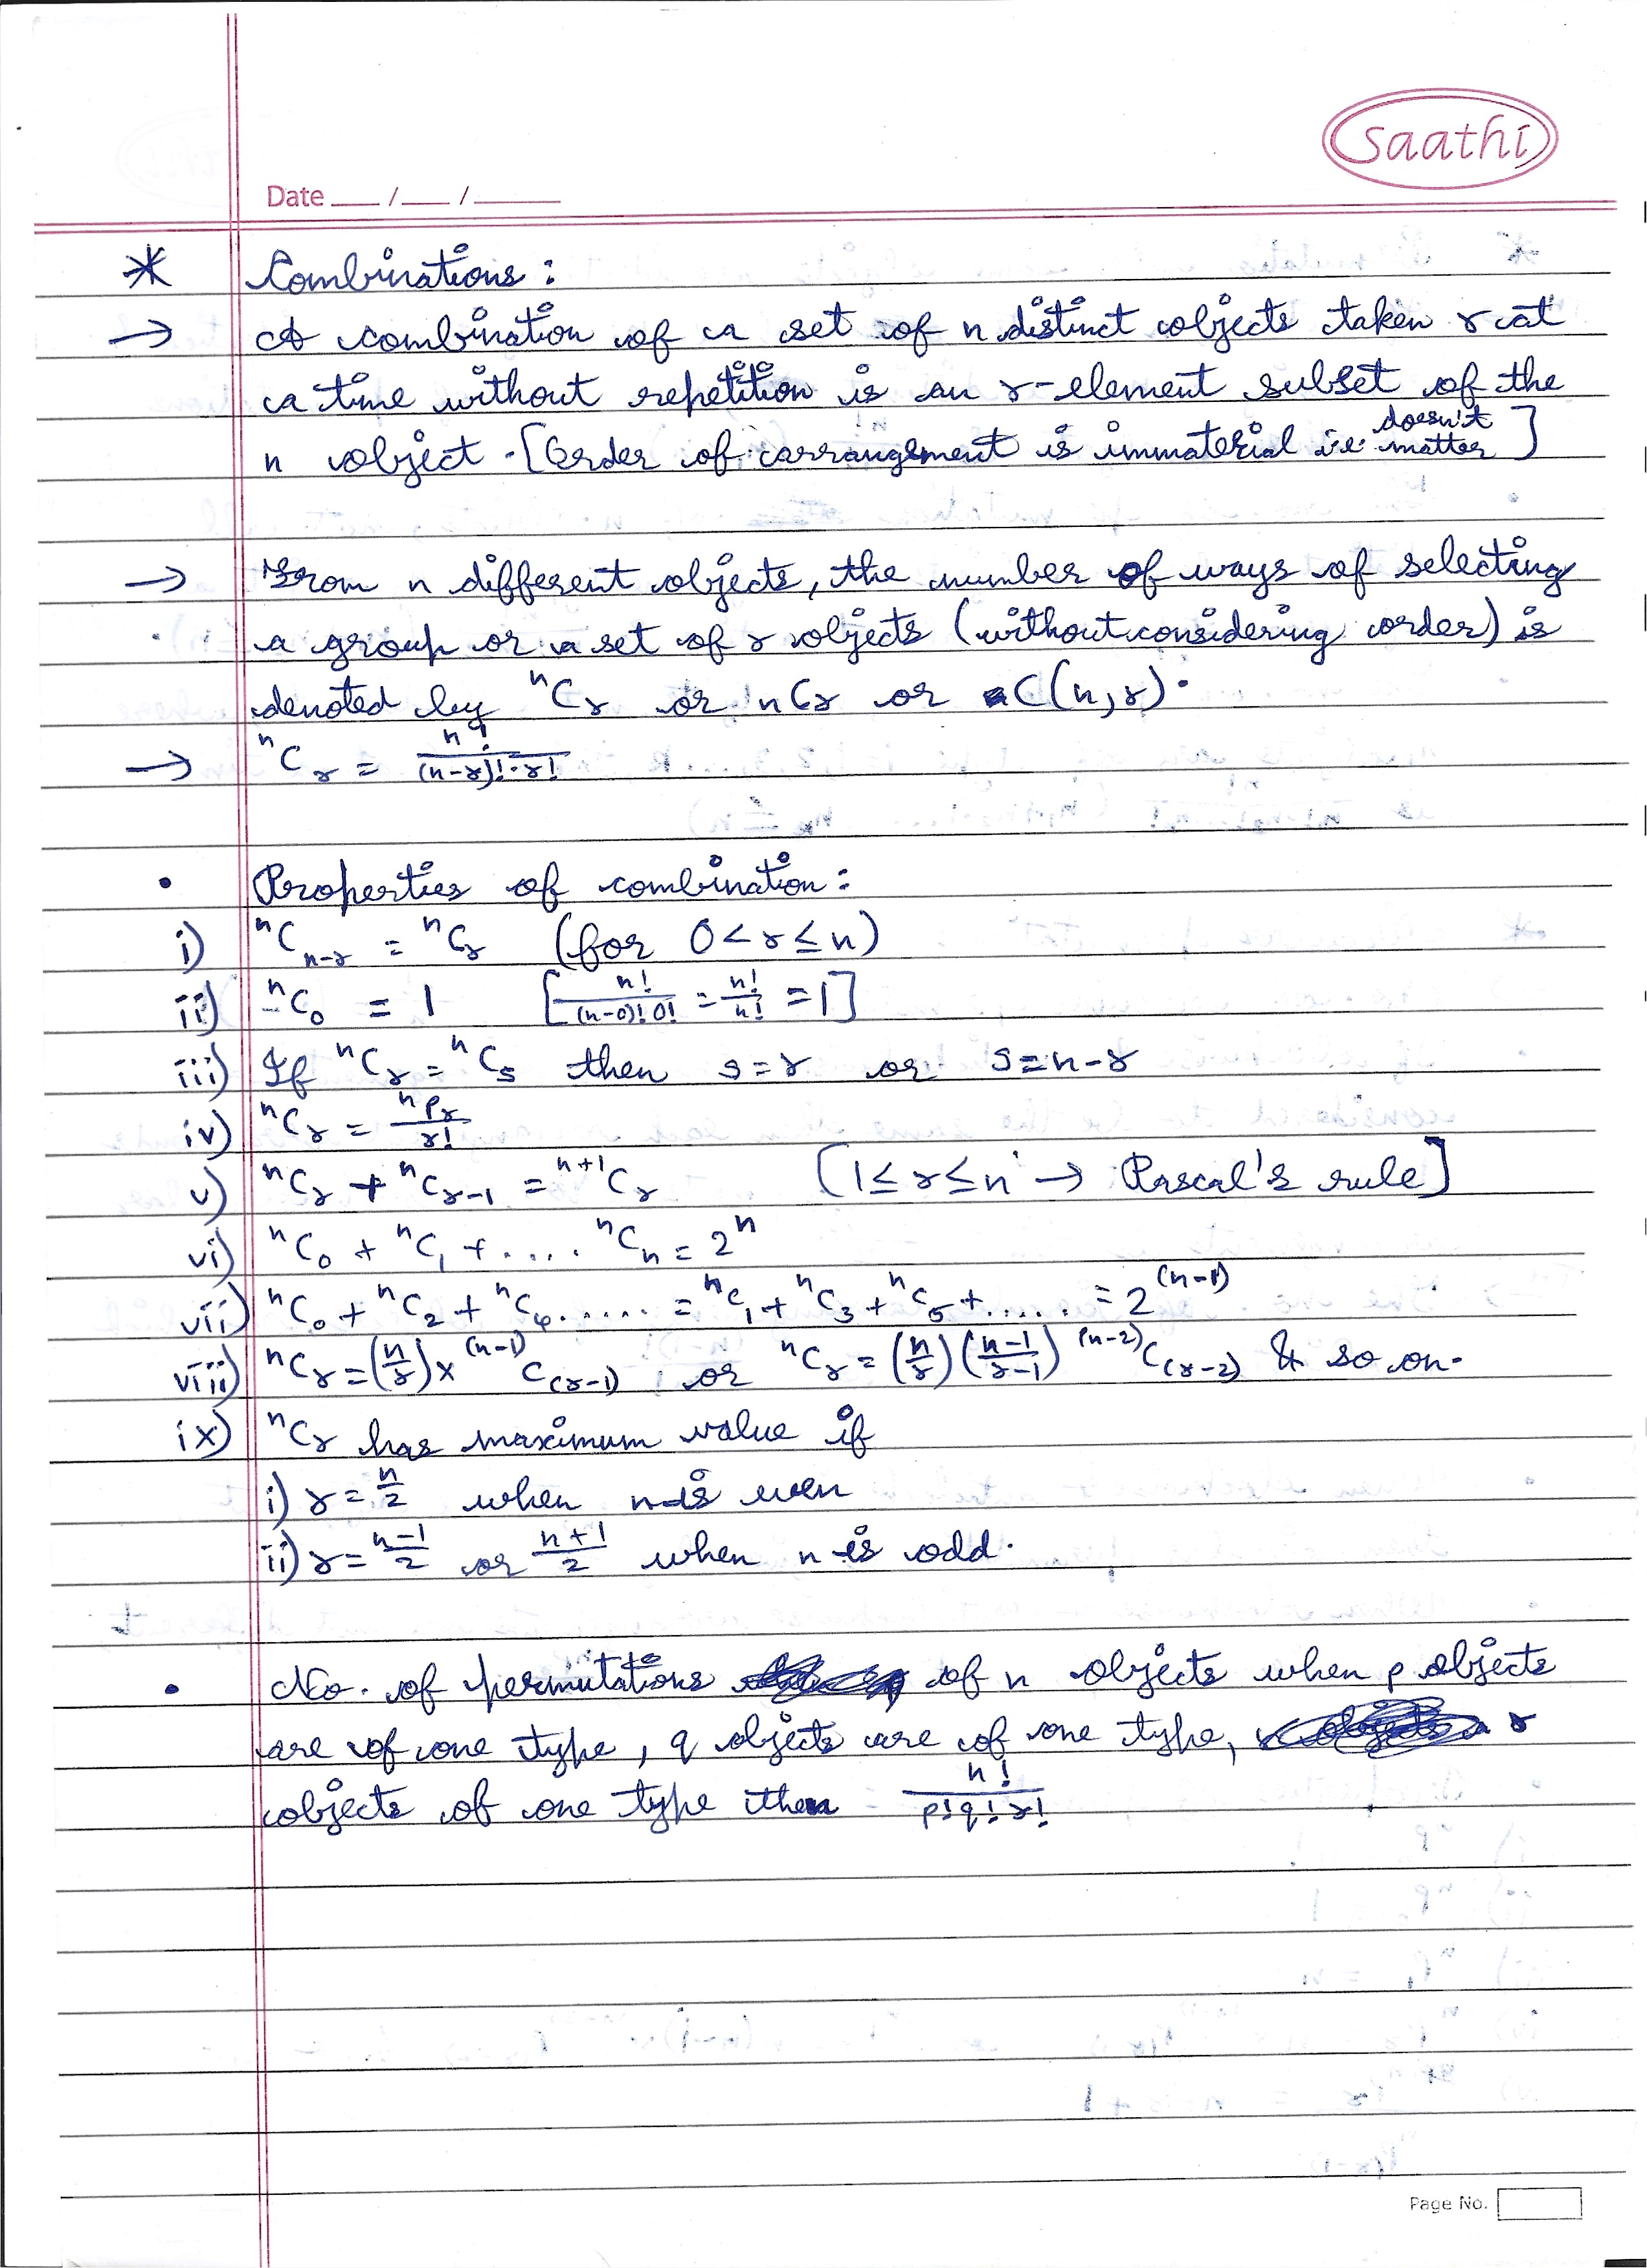 saathi
Date ___/___/______
* Combinations :
→ A combination of a set of n distinct objects taken r at
a time without repetition is an r-element subset of the
n object. [Order of arrangement is immaterial i.e. doesn't matter]
→ From n different objects, the number of ways of selecting
a group or a set of r objects (without considering order) is
denoted by ⁿCᵣ or nCr or C(n,r).
→ ⁿCᵣ = n!/((n-r)!·r!)
• Properties of combination :
i) ⁿCₙ₋ᵣ = ⁿCᵣ (for 0<r≤n)
ii) ⁿC₀ = 1 [n!/((n-0)!0!) = n!/n! = 1]
iii) If ⁿCᵣ = ⁿCₛ then s=r or s=n-r
iv) ⁿCᵣ = ⁿPᵣ/r!
v) ⁿCᵣ + ⁿCᵣ₋₁ = ⁿ⁺¹Cᵣ [1≤r≤n → Pascal's rule]
vi) ⁿC₀ + ⁿC₁ + .... ⁿCₙ = 2ⁿ
vii) ⁿC₀ + ⁿC₂ + ⁿC₄ ..... = ⁿC₁ + ⁿC₃ + ⁿC₅ + ..... = 2⁽ⁿ⁻¹⁾
viii) ⁿCᵣ = (n/r) × ⁽ⁿ⁻¹⁾C₍ᵣ₋₁₎ or ⁿCᵣ = (n/r)((n-1)/(r-1)) ⁽ⁿ⁻²⁾C₍ᵣ₋₂₎ & so on.
ix) ⁿCᵣ has maximum value if
i) r = n/2 when n is even
ii) r = (n-1)/2 or (n+1)/2 when n is odd.
• No. of permutations of n objects when p objects
are of one type, q objects are of one type, r
objects of one type then n!/(p!q!r!)
Page No.